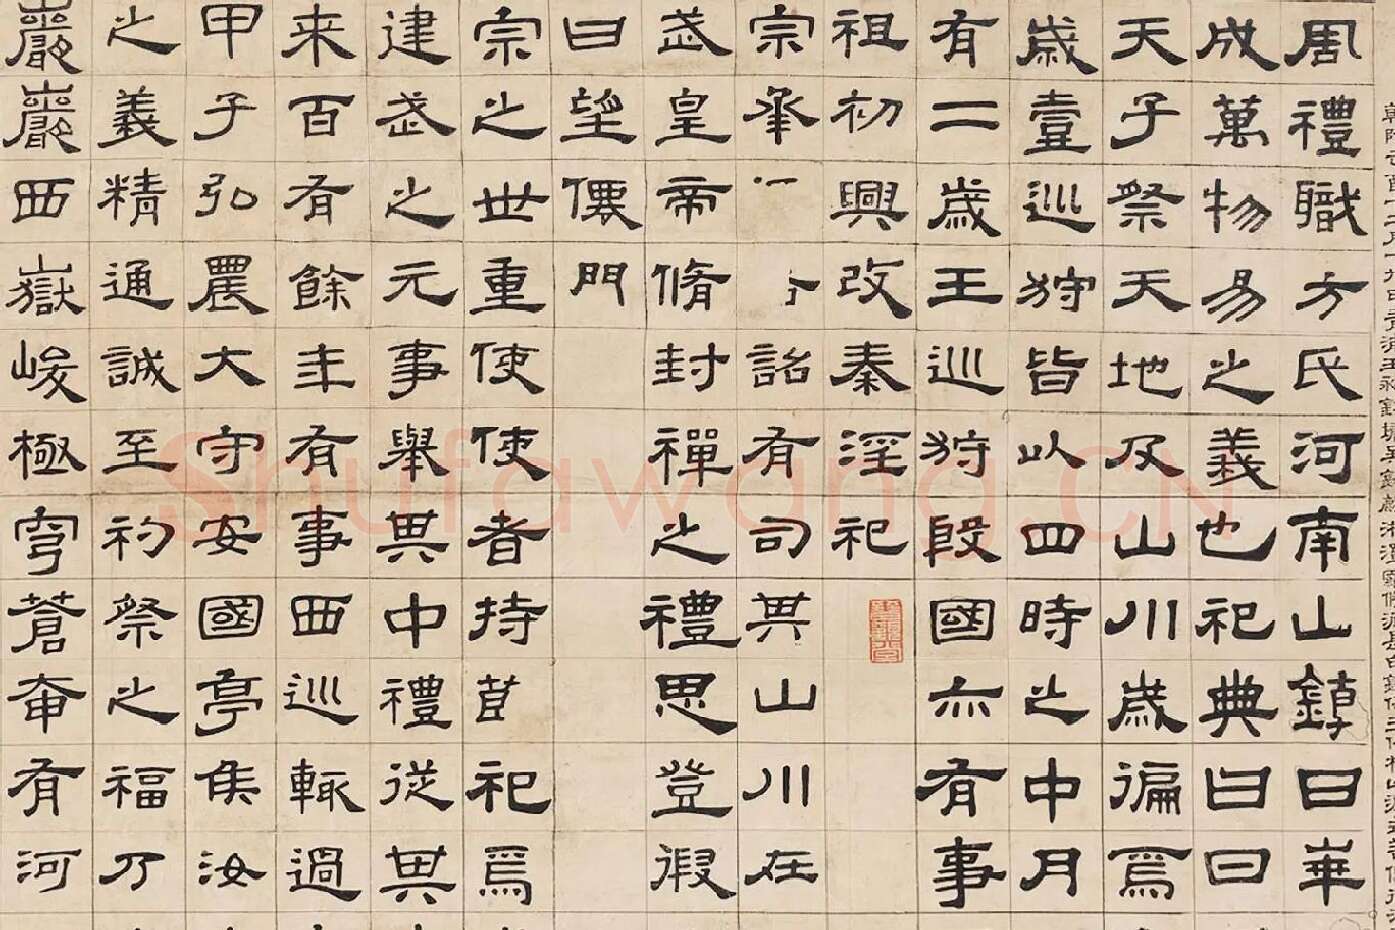 周禮職方氏河南山鎮曰崋
成萬物易之義也祀典曰曰
天子祭天地及山川歲徧焉
歲壹巡狩皆以四時之中月
有二歲王巡狩殷國亦有事
祖初興改秦淫祀
宗承詔有司其山川在
武皇帝脩封禪之禮思登徦
曰望僊門
宗之世重使使者持莒祀焉
建武之元事舉其中禮從其
来百有餘年有事西巡輒過
甲子弘農大守安國亭矦汝
之義精通誠至礿祭之福乃
巖巖西嶽峻極穹蒼奄有河
Shufawang.CN